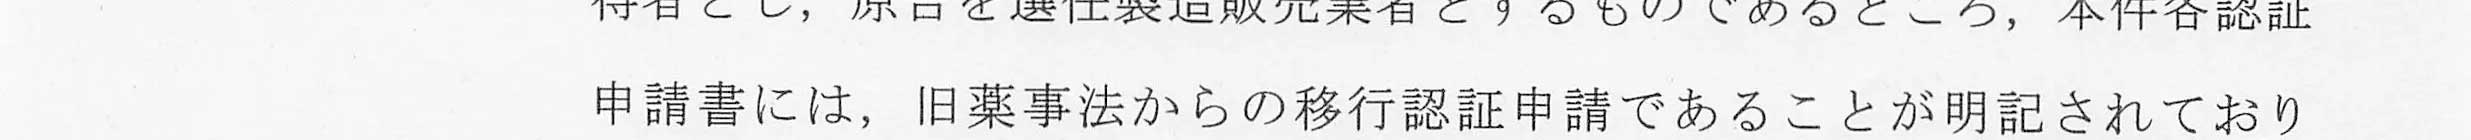 得者とし，原告を選任製造販売業者とするものであるところ，本件各認証
申請書には，旧薬事法からの移行認証申請であることが明記されており